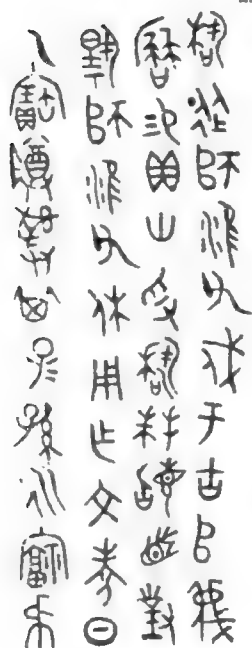 稽從師淮父戍于古𠂤蔑
曆易貝卅寽稽拜𩒨首對
揚師淮父休用乍文考日
乙寶尊彝其子孫永福戉